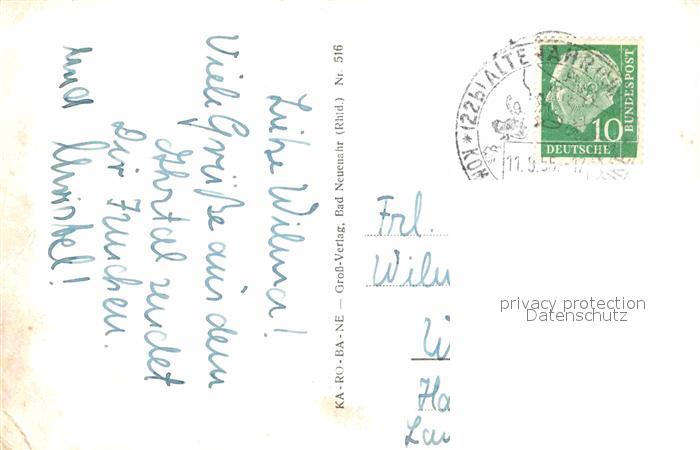 Liebe Wilma!
Viele Grüße aus dem
Ahrtal sendet
Dir Frunchen.
und
KA-RO-BA-NE — Groß-Verlag, Bad Neuenahr (Rhld.) Nr. 516
(22b) ALTENAHR
10
DEUTSCHE
BUNDESPOST
Frl.
Wilm
W
Ha
Lan
privacy protection
Datenschutz